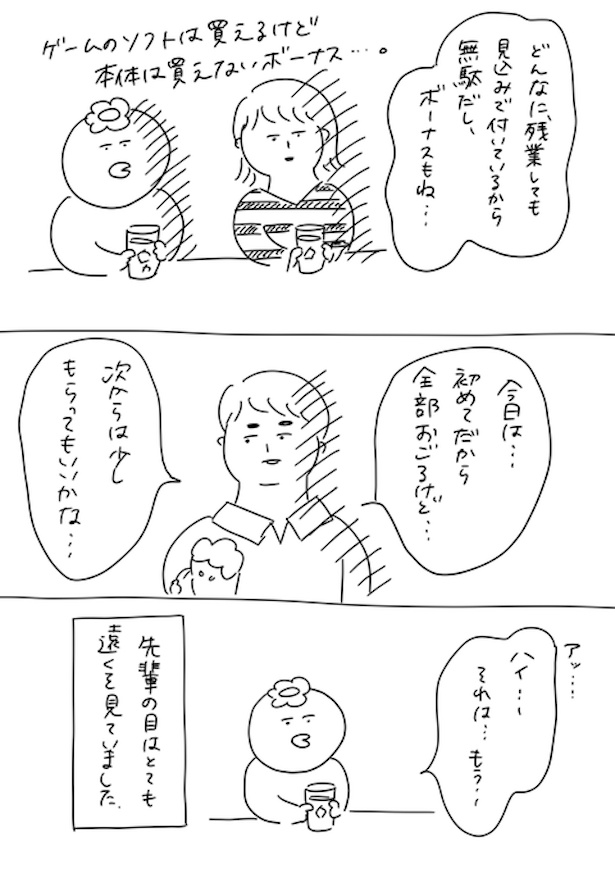 どんなに、残業しても
見込みで付いているから
無駄だし、
ボーナスもね…
ゲームのソフトは買えるけど
本体は買えないボーナス…。
今日は…
初めてだから
全部おごるけど…
次からは少し
もらってもいいかな…
アッ…
ハイ…
それは…もう…
先輩の目はとても
遠くを見ていました.